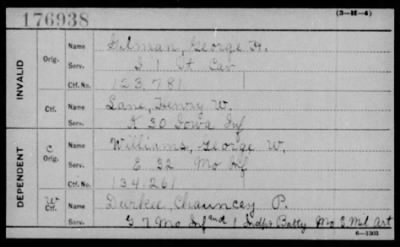 176938
(3-H-4)
INVALID
Orig.
Name Gilman, George H.
Serv. I 1 Vt Cav
Ctf. No. 123,781
Ctf.
Name Lane, Henry W.
Serv. K 30 Iowa Inf
DEPENDENT
C
Orig.
Name Williams, George W.
Serv. E 32 Mo Inf
Ctf. No. 134,261
Ctf.
Name Durkee, Chauncey P.
G 7 Mo Inf and 1 Batty Mo S Mil Art
6—1303